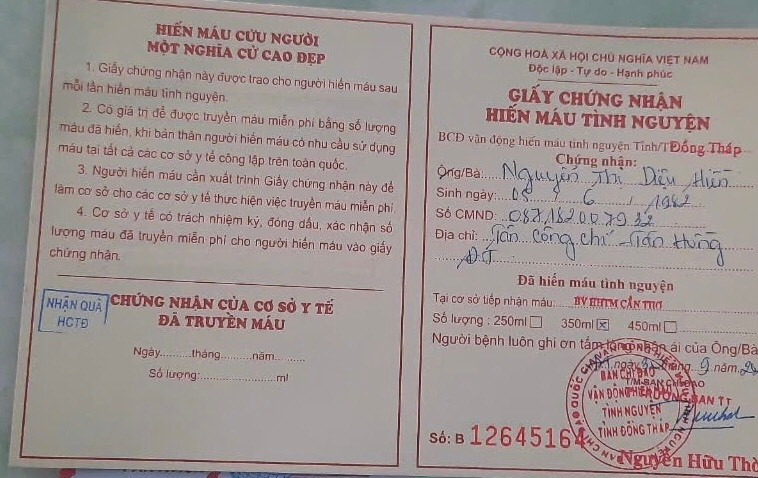 HIẾN MÁU CỨU NGƯỜI
MỘT NGHĨA CỬ CAO ĐẸP
1. Giấy chứng nhận này được trao cho người hiến máu sau
mỗi lần hiến máu tình nguyện.
2. Có giá trị để được truyền máu miễn phí bằng số lượng
máu đã hiến, khi bản thân người hiến máu có nhu cầu sử dụng
máu tại tất cả các cơ sở y tế công lập trên toàn quốc.
3. Người hiến máu cần xuất trình Giấy chứng nhận này để
làm cơ sở cho các cơ sở y tế thực hiện việc truyền máu miễn phí.
4. Cơ sở y tế có trách nhiệm ký, đóng dấu, xác nhận số
lượng máu đã truyền miễn phí cho người hiến máu vào giấy
chứng nhận.
NHẬN QUÀ
HCTĐ
CHỨNG NHẬN CỦA CƠ SỞ Y TẾ
ĐÃ TRUYỀN MÁU
Ngày..........tháng..........năm...........
Số lượng:..........................ml
CỘNG HOÀ XÃ HỘI CHỦ NGHĨA VIỆT NAM
Độc lập - Tự do - Hạnh phúc
GIẤY CHỨNG NHẬN
HIẾN MÁU TÌNH NGUYỆN
BCĐ vận động hiến máu tình nguyện Tỉnh/T Đồng Tháp
Chứng nhận:
Ông/Bà: Nguyễn Thị Diệu Hiền
Sinh ngày: 05 / 6 / 1982
Số CMND: 087182007932
Địa chỉ: Tân Công Chí - Tân Hưng
Đ.T
Đã hiến máu tình nguyện
Tại cơ sở tiếp nhận máu: BV HHTM CẦN THƠ
Số lượng : 250ml☐ 350ml☒ 450ml☐
Người bệnh luôn ghi ơn tấm lòng nhân ái của Ông/Bà
tháng 9 năm
T/M BAN CHỈ ĐẠO
TRƯỞNG BAN TT
BAN CHỈ ĐẠO
VẬN ĐỘNG HIẾN MÁU
TÌNH NGUYỆN
TỈNH ĐỒNG THÁP
Số: B 12645164
Nguyễn Hữu